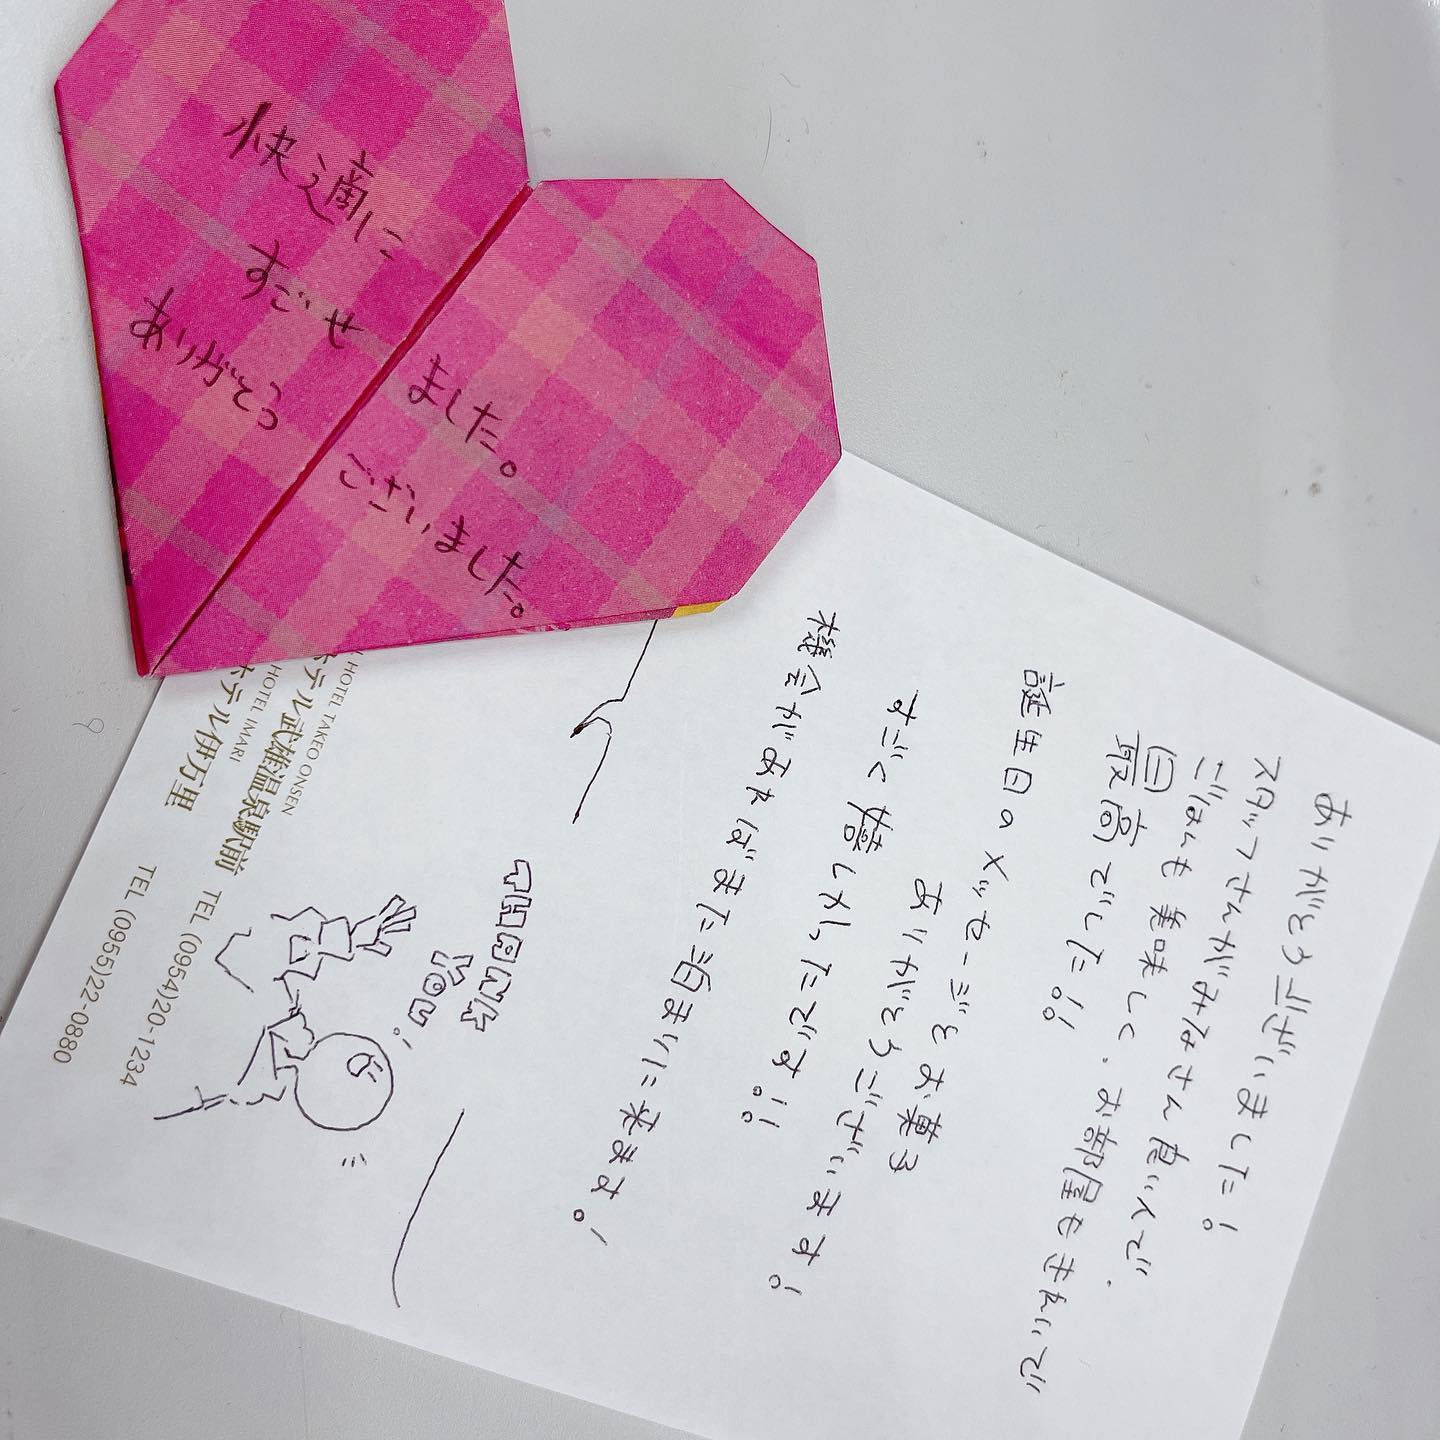 快適に
すごせ
ました。
ありがとう
ございました。
ありがとうございました!
スタッフさんがみなさん良い人で
ごはんも美味しく、お部屋もきれいで
最高でした!!
誕生日のメッセージとお菓子
ありがとうございます!!
すごく嬉しかったです!!
機会があればまた泊まりに来ます!
THANK
YOU!
HOTEL TAKEO ONSEN
ホテル武雄温泉駅前 TEL (0954)20-1234
HOTEL IMARI
ホテル伊万里 TEL (0955)22-0880